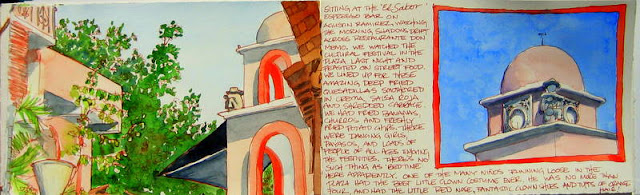 SITTING AT THE "El Sabor"
ESPRESSO BAR ON
AQUILES RAMIREZ, WATCHING
THE MORNING SHADOWS DRIFT
ACROSS RESTAURANTE DON
MEMO. WE WATCHED THE
CULTURAL FESTIVAL IN THE
PLAZA LAST NIGHT AND
FEASTED ON STREET FOOD.
WE LINED UP FOR THESE
AMAZING DEEP FRIED
QUESADILLAS SMOTHERED
IN CREMA, SALSA ROJA
AND SHREDDED CABBAGE.
WE HAD FRIED BANANAS,
CHURROS AND FRESHLY
FRIED POTATO CHIPS. THERE
WERE DANCING GIRLS,
PAYASOS, AND LOADS OF
PEOPLE OF ALL AGES ENJOYING
THE FESTIVITIES. THERE'S NO
SUCH THING AS BEDTIME
HERE APPARENTLY. ONE OF THE MANY NIÑOS RUNNING LOOSE IN THE
PLAZA HAD THE BEST LITTLE CLOWN COSTUME EVER. HE WAS NO MORE THAN
FOUR, AND HAD THE LITTLE RED NOSE, FANTASTIC CLOWN SHOES AND TUFTS OF ORANGE
HAIR.